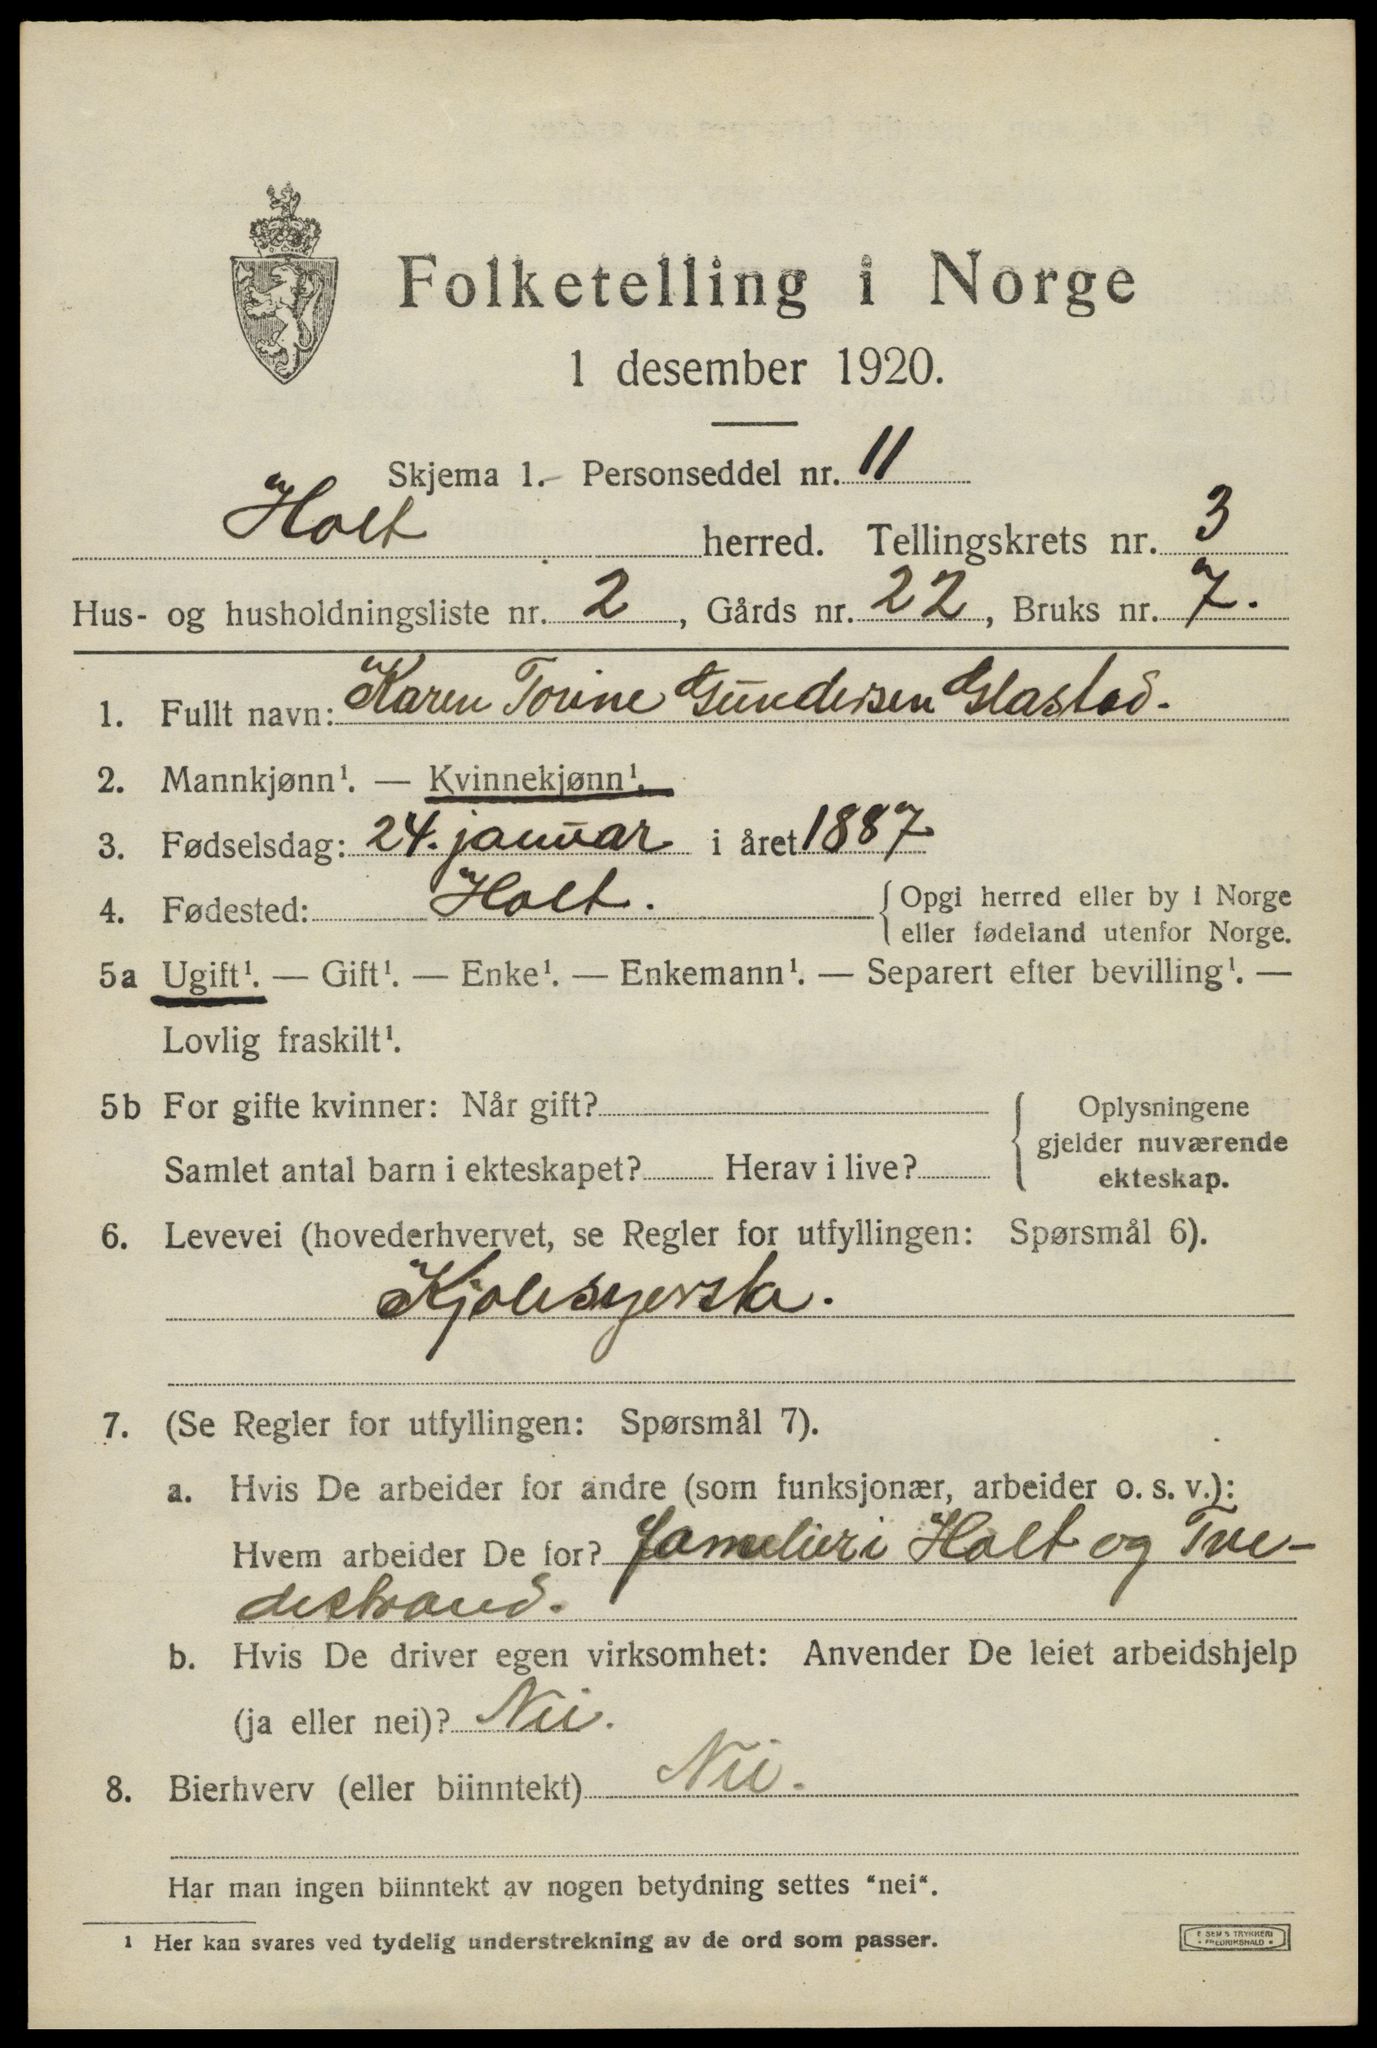 Folketelling i Norge
1 desember 1920.
Skjema 1. Personseddel nr. 11
Holt herred. Tellingskrets nr. 3
Hus- og husholdningsliste nr. 2, Gårds nr. 22, Bruks nr. 7.
1. Fullt navn: Karen Tovine Gundersen Glastad.
2. Mannkjønn¹. — Kvinnekjønn¹.
3. Fødselsdag: 24. januar i året 1887
4. Fødested: Holt. {Opgi herred eller by i Norge
eller fødeland utenfor Norge.
5a Ugift¹. — Gift¹. — Enke¹. — Enkemann¹. — Separert efter bevilling¹. —
Lovlig fraskilt¹.
5b For gifte kvinner: Når gift?
Samlet antal barn i ekteskapet? Herav i live?
{Oplysningene
gjelder nuværende
ekteskap.
6. Levevei (hovederhvervet, se Regler for utfyllingen: Spørsmål 6).
Kjolesyerska.
7. (Se Regler for utfyllingen: Spørsmål 7).
a. Hvis De arbeider for andre (som funksjonær, arbeider o. s. v.):
Hvem arbeider De for? familier i Holt og Tve-
destrand.
b. Hvis De driver egen virksomhet: Anvender De leiet arbeidshjelp
(ja eller nei)? Nei.
8. Bierhverv (eller biinntekt) Nei.
Har man ingen biinntekt av nogen betydning settes "nei".
¹ Her kan svares ved tydelig understrekning av de ord som passer.
TRYKKERI
FREDRIKSHALD